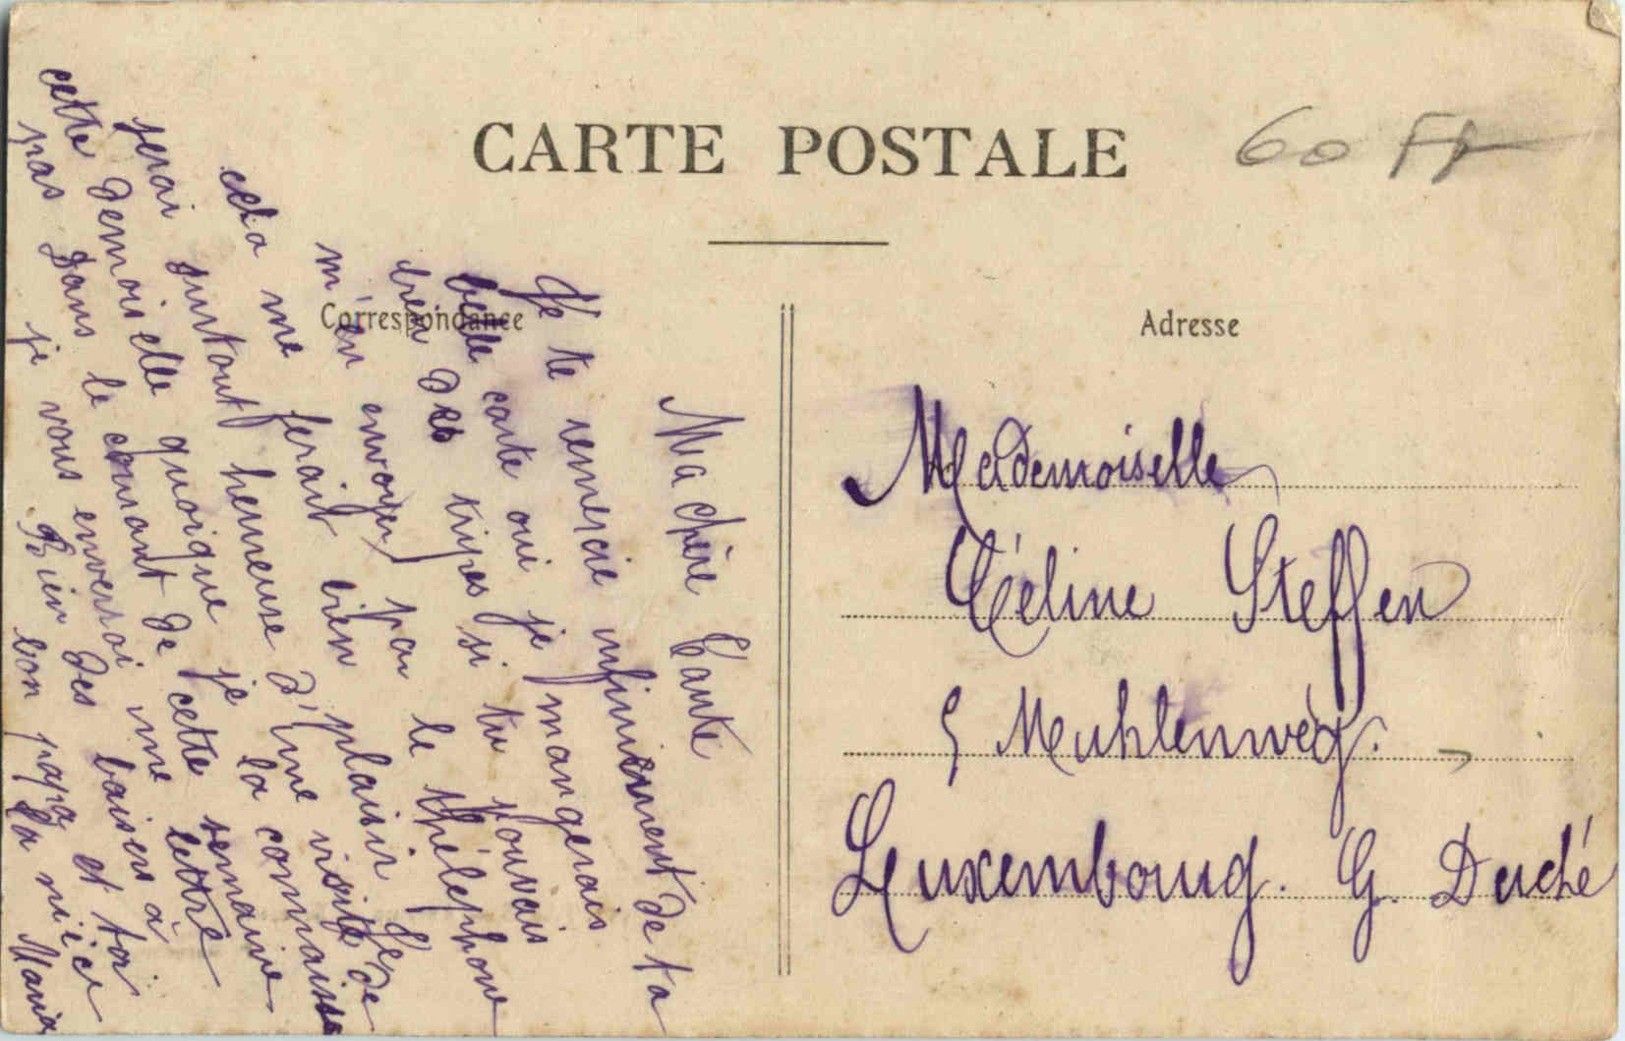 CARTE POSTALE
60 Ff
Correspondance
Adresse
Ma chère Tante
Je te remercie infiniment de ta
belle carte oui je mangerais
bien des tripes si tu pouvais
m'en envoyer par le thélephone
cela me ferait bien plaisir. Je
serai surtout heureuse d'une visite de
cette demoiselle quoique je la connaisse
pas Dans le courant de cette semaine
je vous enverrai une lettre
Rien des baisers à
bon papa et toi
ta nièce
Maria
Mademoiselle
Céline Steffen
5 Meuhlenweg.
Leuxembourg. G. Duché